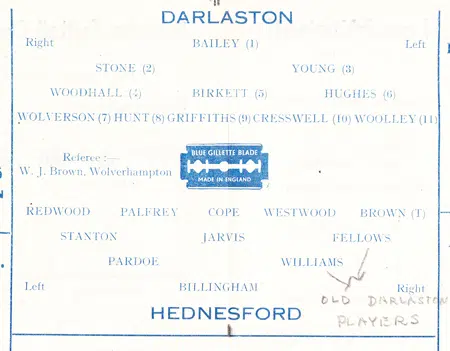 DARLASTON
Right BAILEY (1) Left
STONE (2) YOUNG (3)
WOODHALL (4) BIRKETT (5) HUGHES (6)
WOLVERSON (7) HUNT (8) GRIFFITHS (9) CRESSWELL (10) WOOLLEY (11)
Referee :—
W. J. Brown, Wolverhampton
BLUE GILLETTE BLADE
MADE IN ENGLAND
REDWOOD PALFREY COPE WESTWOOD BROWN (T)
STANTON JARVIS FELLOWS
PARDOE WILLIAMS
Left BILLINGHAM Right
HEDNESFORD
OLD DARLASTON
PLAYERS